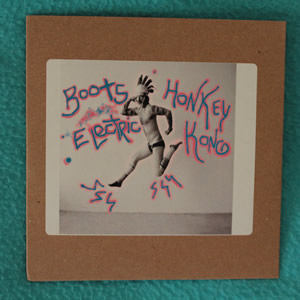 BOOTS
ELECTRIC
HONKEY
KONG